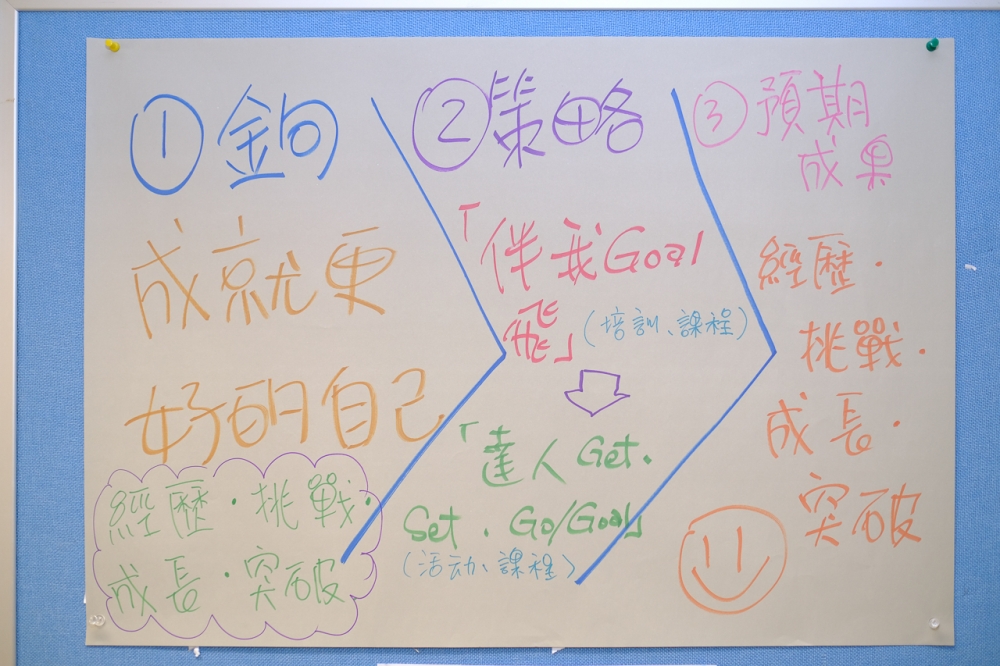 ① 金句
成就更
好的自己
經歷·挑戰·
成長·突破
② 策略
「伴我Goal
飛」(培訓、課程)
「達人Get.
Set.Go/Goal」
(活动、課程)
③ 預期
成果
經歷·
挑戰·
成長·
突破